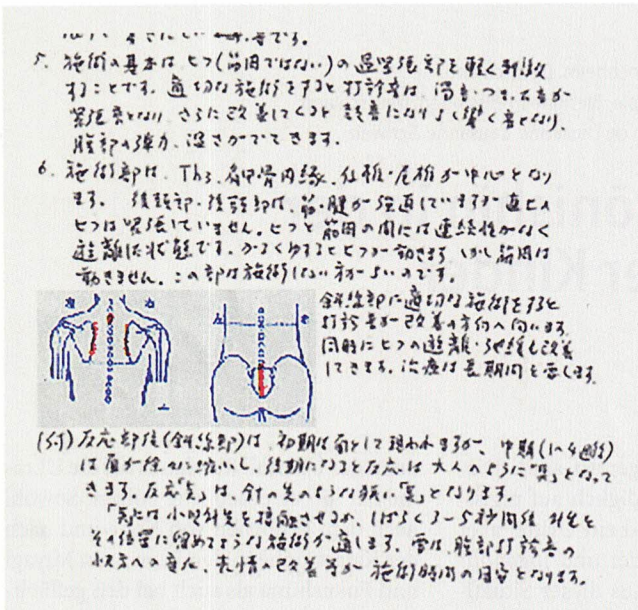 5. 施術の基本はヒフ(筋肉ではない)の過緊張部を軽く刺激
することです。適切な施術をすると打診音は、濁音・つまった音が
緊張音となり、さらに改善してくると鼓音になりよく響く音となり
腹部の弾力、温さがでてきます。
6. 施術部は、Th3、肩甲骨内縁、仙椎・尾椎が中心となり
ます。後頚部・後頭部は、筋・腱が強直していますが直上の
ヒフは緊張していません。ヒフと筋肉の間には連続性がなく
遊離した状態です。かるくゆするとヒフが動きますが、筋肉は
動きません。この部は施術しない方がよいのです。
左 右
左 右
斜線部に適切な施術をすると
打診音が改善の方向へ向います。
同時にヒフの遊離・弛緩も改善
してきます。治療は長期間を要します。
反応部位(斜線部)は、初期は面として現われますが、中期(
は面が徐々に縮小し、後期になると反応は大人のように「点」となって
きます。反応「点」は、針の先のような狭い「点」となります。
「点」には小児針先を接触させるか、しばらく3~5秒間位針先を
その位置に留めるような施術が適します。
水方への変化、表情の改善等が施術時間の目安となります。